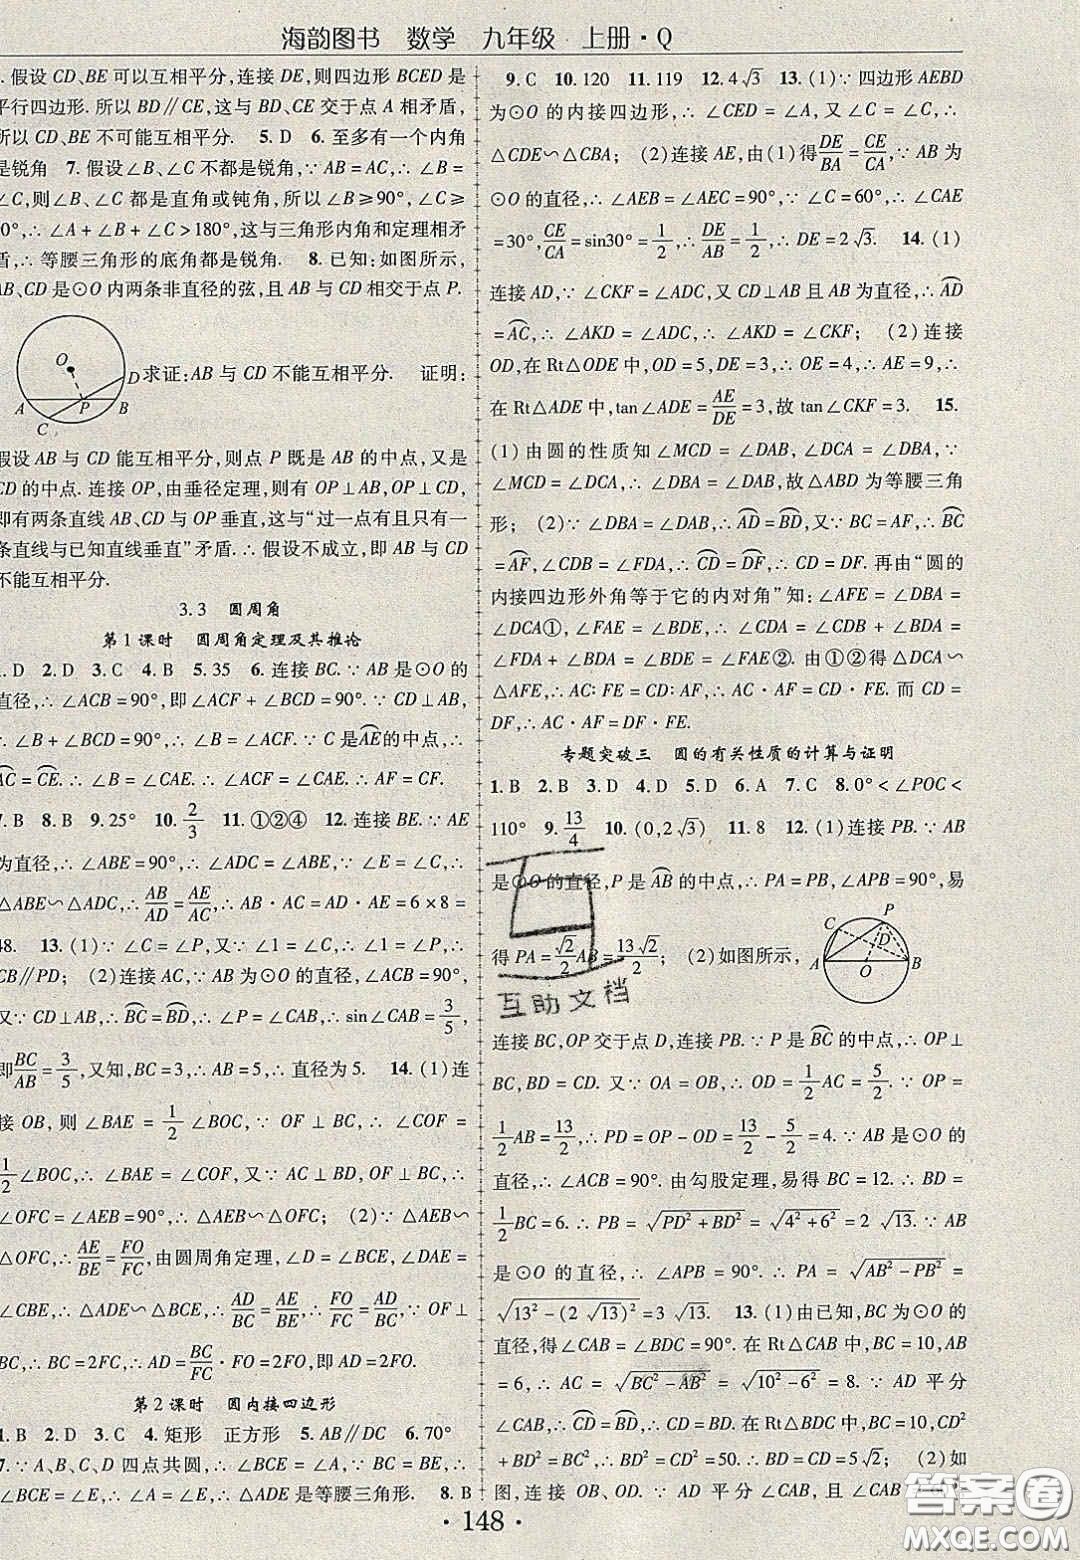 海韵图书 数学 九年级 上册·Q
. 假设 CD、BE 可以互相平分,连接 DE,则四边形 BCED 是
平行四边形. 所以 BD∥CE,这与 BD、CE 交于点 A 相矛盾,
所以 CD、BE 不可能互相平分. 5. D 6. 至多有一个内角
是锐角 7. 假设∠B、∠C 不都是锐角,∵ AB=AC,∴ ∠B=
∠C,则∠B、∠C 都是直角或钝角,所以∠B≥90°,∠C≥
90°,∴ ∠A+∠B+∠C>180°,这与三角形内角和定理相矛
盾,∴ 等腰三角形的底角都是锐角. 8. 已知:如图所示,
AB、CD 是⊙O 内两条非直径的弦,且 AB 与 CD 相交于点 P.
O D A P B C
求证:AB 与 CD 不能互相平分. 证明:
假设 AB 与 CD 能互相平分,则点 P 既是 AB 的中点,又是
CD 的中点. 连接 OP,由垂径定理,则有 OP⊥AB,OP⊥CD,
即有两条直线 AB、CD 与 OP 垂直,这与“过一点有且只有一
条直线与已知直线垂直”矛盾.∴ 假设不成立,即 AB 与 CD
不能互相平分.
3.3 圆周角
第 1 课时 圆周角定理及其推论
1. D 2. D 3. C 4. B 5. 35 6. 连接 BC.∵ AB 是⊙O 的
直径,∴ ∠ACB=90°,即∠ACF+∠BCD=90°.∵ CD⊥AB,
∴ ∠B+∠BCD=90°,∴ ∠B=∠ACF.∵ C 是⌒AE的中点,∴
⌒AC=⌒CE.∴ ∠B=∠CAE,∴ ∠ACF=∠CAE,∴ AF=CF.
7. B 8. B 9. 25° 10. 2/3 11. ①②④ 12. 连接 BE.∵ AE
为直径,∴ ∠ABE=90°,∴ ∠ADC=∠ABE,∵ ∠E=∠C,∴
△ABE∽△ADC,∴ AB/AD=AE/AC,∴ AB·AC=AD·AE=6×8=
48. 13. (1)∵ ∠C=∠P,又∵ ∠1=∠C,∴ ∠1=∠P,∴
CB∥PD; (2)连接 AC,∵ AB 为⊙O 的直径,∴ ∠ACB=90°,
又∵ CD⊥AB,∴ ⌒BC=⌒BD,∴ ∠P=∠CAB,∴ sin∠CAB=3/5,
即BC/AB=3/5,又知,BC=3,∴ AB=5,∴ 直径为 5. 14. (1)连
接 OB,则 ∠BAE=1/2∠BOC,∵ OF⊥BC,∴ ∠COF=
1/2∠BOC,∴ ∠BAE=∠COF,又∵ AC⊥BD,OF⊥BC,∴
∠OFC=∠AEB=90°,∴ △AEB∽△OFC; (2)∵ △AEB∽
△OFC,∴ AE/BE=FO/FC,由圆周角定理,∠D=∠BCE,∠DAE=
∠CBE,∴ △ADE∽△BCE,∴ AD/BC=AE/BE,∴ FO/FC=AD/BC,∵ OF⊥
BC,∴ BC=2FC,∴ AD=BC/FC·FO=2FO,即 AD=2FO.
第 2 课时 圆内接四边形
1. B 2. D 3. C 4. 矩形 正方形 5. AB∥DC 6. 70°
7. ∵ A、B、C、D 四点共圆,∴ ∠BCE=∠A,∵ BC=BE,∴
∠BCE=∠E,∴ ∠A=∠E,∴ △ADE 是等腰三角形. 8. B
9. C 10. 120 11. 119 12. 4√3 13. (1)∵ 四边形 AEBD
为⊙O 的内接四边形,∴ ∠CED=∠A,又∠C=∠C,∴
△CDE∽△CBA; (2)连接 AE,由(1)得DE/BA=CE/CA,∵ AB 为
⊙O 的直径,∴ ∠AEB=∠AEC=90°,∵ ∠C=60°,∴ ∠CAE
=30°,CE/CA=sin30°=1/2,∴ DE/AB=1/2,∴ DE=2√3. 14. (1)
连接 AD,∵ ∠CKF=∠ADC,又 CD⊥AB 且 AB 为直径,∴ ⌒AD
=⌒AC,∴ ∠AKD=∠ADC,∴ ∠AKD=∠CKF; (2)连接
OD,在 Rt△ODE 中,OD=5,DE=3,∴ OE=4,∴ AE=9,∴
在 Rt△ADE 中,tan∠ADE=AE/DE=3,故 tan∠CKF=3. 15.
(1)由圆的性质知∠MCD=∠DAB,∠DCA=∠DBA,∵
∠MCD=∠DCA,∴ ∠DBA=∠DAB,故△DAB 为等腰三角
形; (2)∵ ∠DBA=∠DAB,∴ ⌒AD=⌒BD,又∵ BC=AF,∴ ⌒BC
=⌒AF,∴ ∠CDB=∠FDA,∴ ⌒CD=⌒DF,∴ CD=DF. 再由“圆的
内接四边形外角等于它的内对角”知:∠AFE=∠DBA=
∠DCA①,∠FAE=∠BDE,∴ ∠CDA=∠CDB+∠BDA=
∠FDA+∠BDA=∠BDE=∠FAE②. 由①②得△DCA∽
△AFE,∴ AC∶FE=CD∶AF,∴ AC·AF=CD·FE. 而 CD=
DF,∴ AC·AF=DF·FE.
专题突破三 圆的有关性质的计算与证明
1. B 2. B 3. D 4. D 5. D 6. A 7. C 8. 0°<∠POC<
110° 9. 13/4 10. (0,2√3) 11. 8 12. (1)连接 PB.∵ AB
是⊙O 的直径,P 是⌒AB的中点,∴ PA=PB,∠APB=90°,易
得 PA=√2/2AB=13√2/2; (2)如图所示,
C P D A O B
连接 BC,OP 交于点 D,连接 PB.∵ P 是⌒BC的中点,∴ OP⊥
BC,BD=CD. 又∵ OA=OB,∴ OD=1/2AC=5/2.∵ OP=
1/2AB=13/2,∴ PD=OP-OD=13/2-5/2=4.∵ AB 是⊙O 的
直径,∴ ∠ACB=90°. 由勾股定理,易得 BC=12.∴ BD=
1/2BC=6.∴ PB=√(PD²+BD²)=√(4²+6²)=2√13.∵ AB
是⊙O 的直径,∴ ∠APB=90°.∴ PA=√(AB²-PB²)=
√(13²-(2√13)²)=3√13. 13. (1)由已知,BC 为⊙O 的
直径,得∠CAB=∠BDC=90°. 在 Rt△CAB 中,BC=10,AB
=6,∴ AC=√(BC²-AB²)=√(10²-6²)=8.∵ AD 平分
∠CAB,∴ ⌒CD=⌒BD,∴ CD=BD. 在 Rt△BDC 中,BC=10,CD²
+BD²=BC²,∴ BD²=CD²=50.∴ BD=CD=5√2; (2)如
图,连接 OB、OD.∵ AD 平分∠CAB,且∠CAB
互助文档
答案圈
MXQE.COM
·148·